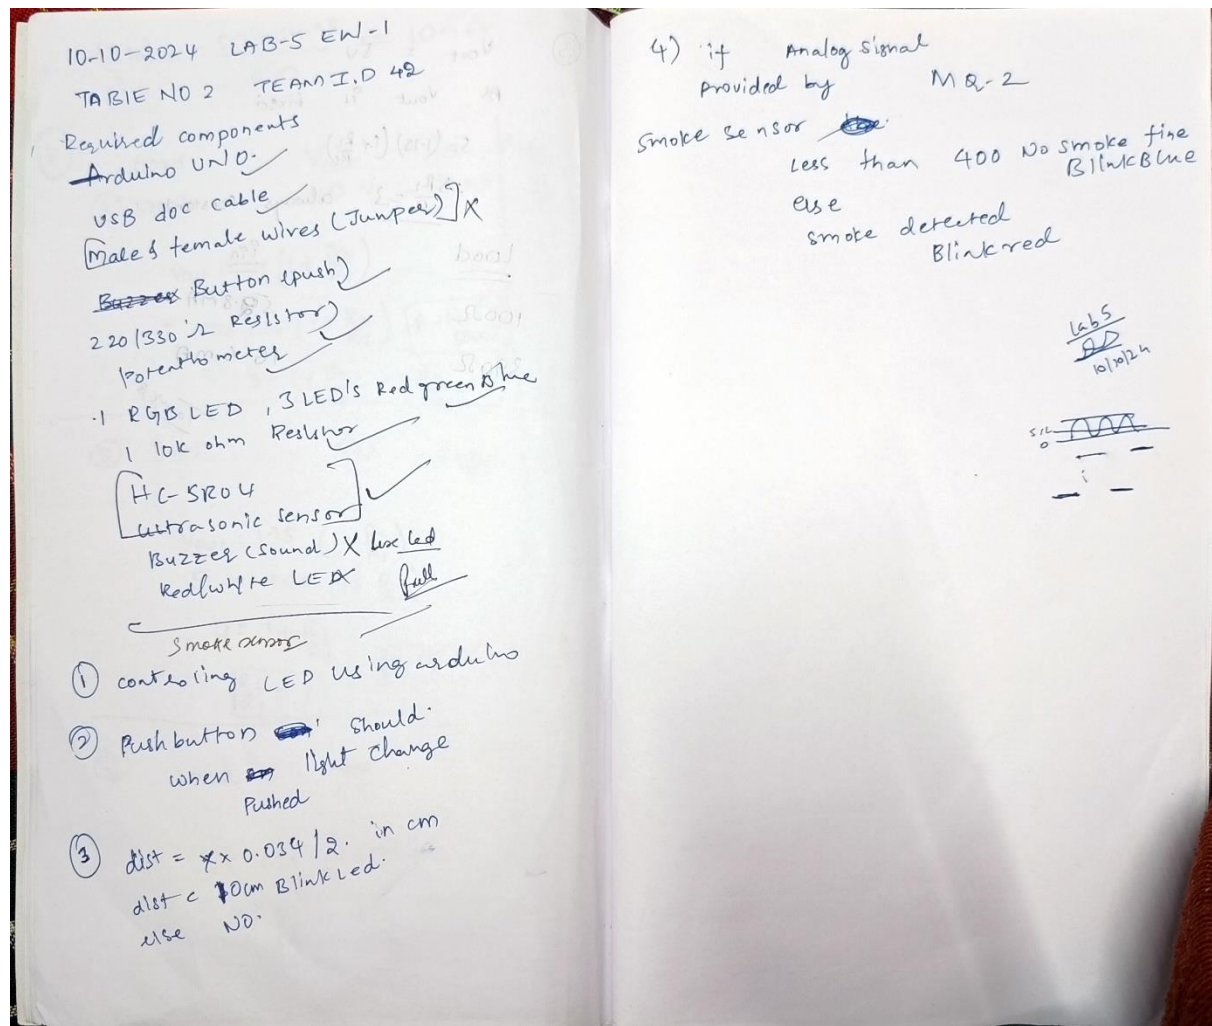 10-10-2024 LAB-5 EW-1
TABLE NO 2 TEAM I.D 42
Required components
Arduino UNO.
USB doc cable
Male & female wires (Jumper) X
Button (push)
220/330 Ω Resistor)
Potenthometer
.1 RGB LED, 3 LED's Red green Blue
1 10k ohm Resistor
HC-SR04
ultrasonic sensor
Buzzer (sound) X use led
Red/white LED
Smoke sensor
1 controling LED using arduino
2 Pushbutton should.
when light change
Pushed
3 dist = x x 0.034/2. in cm
dist < 10cm Blink Led.
else NO.
4) if Analog signal
provided by MQ-2
smoke sensor
Less than 400 No smoke fine
Blink Blue
else
smoke detected
Blink red
Lab 5
10/10/24
0